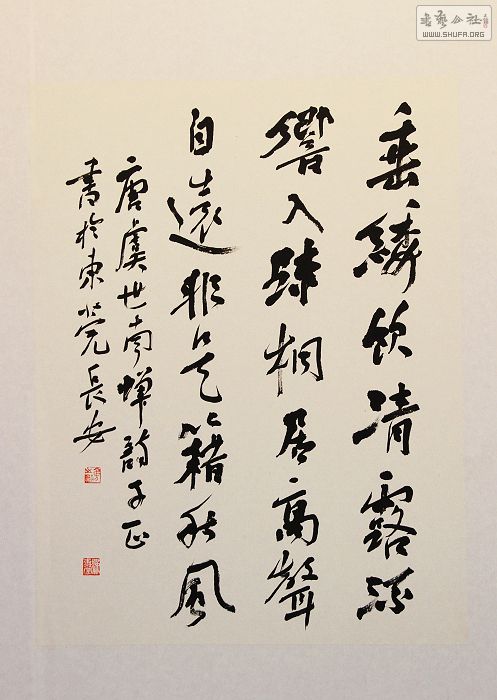 書藝公社
WWW.SHUFA.ORG
垂繗飲清露流
響入疎桐居高聲
自遠非是籍秋風
唐虞世南蟬詩子正
書於東莞長安